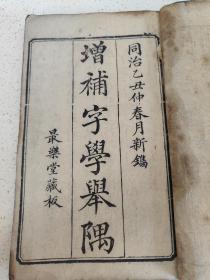 同治乙丑仲春月新鐫
增補字學舉隅
最樂堂藏板